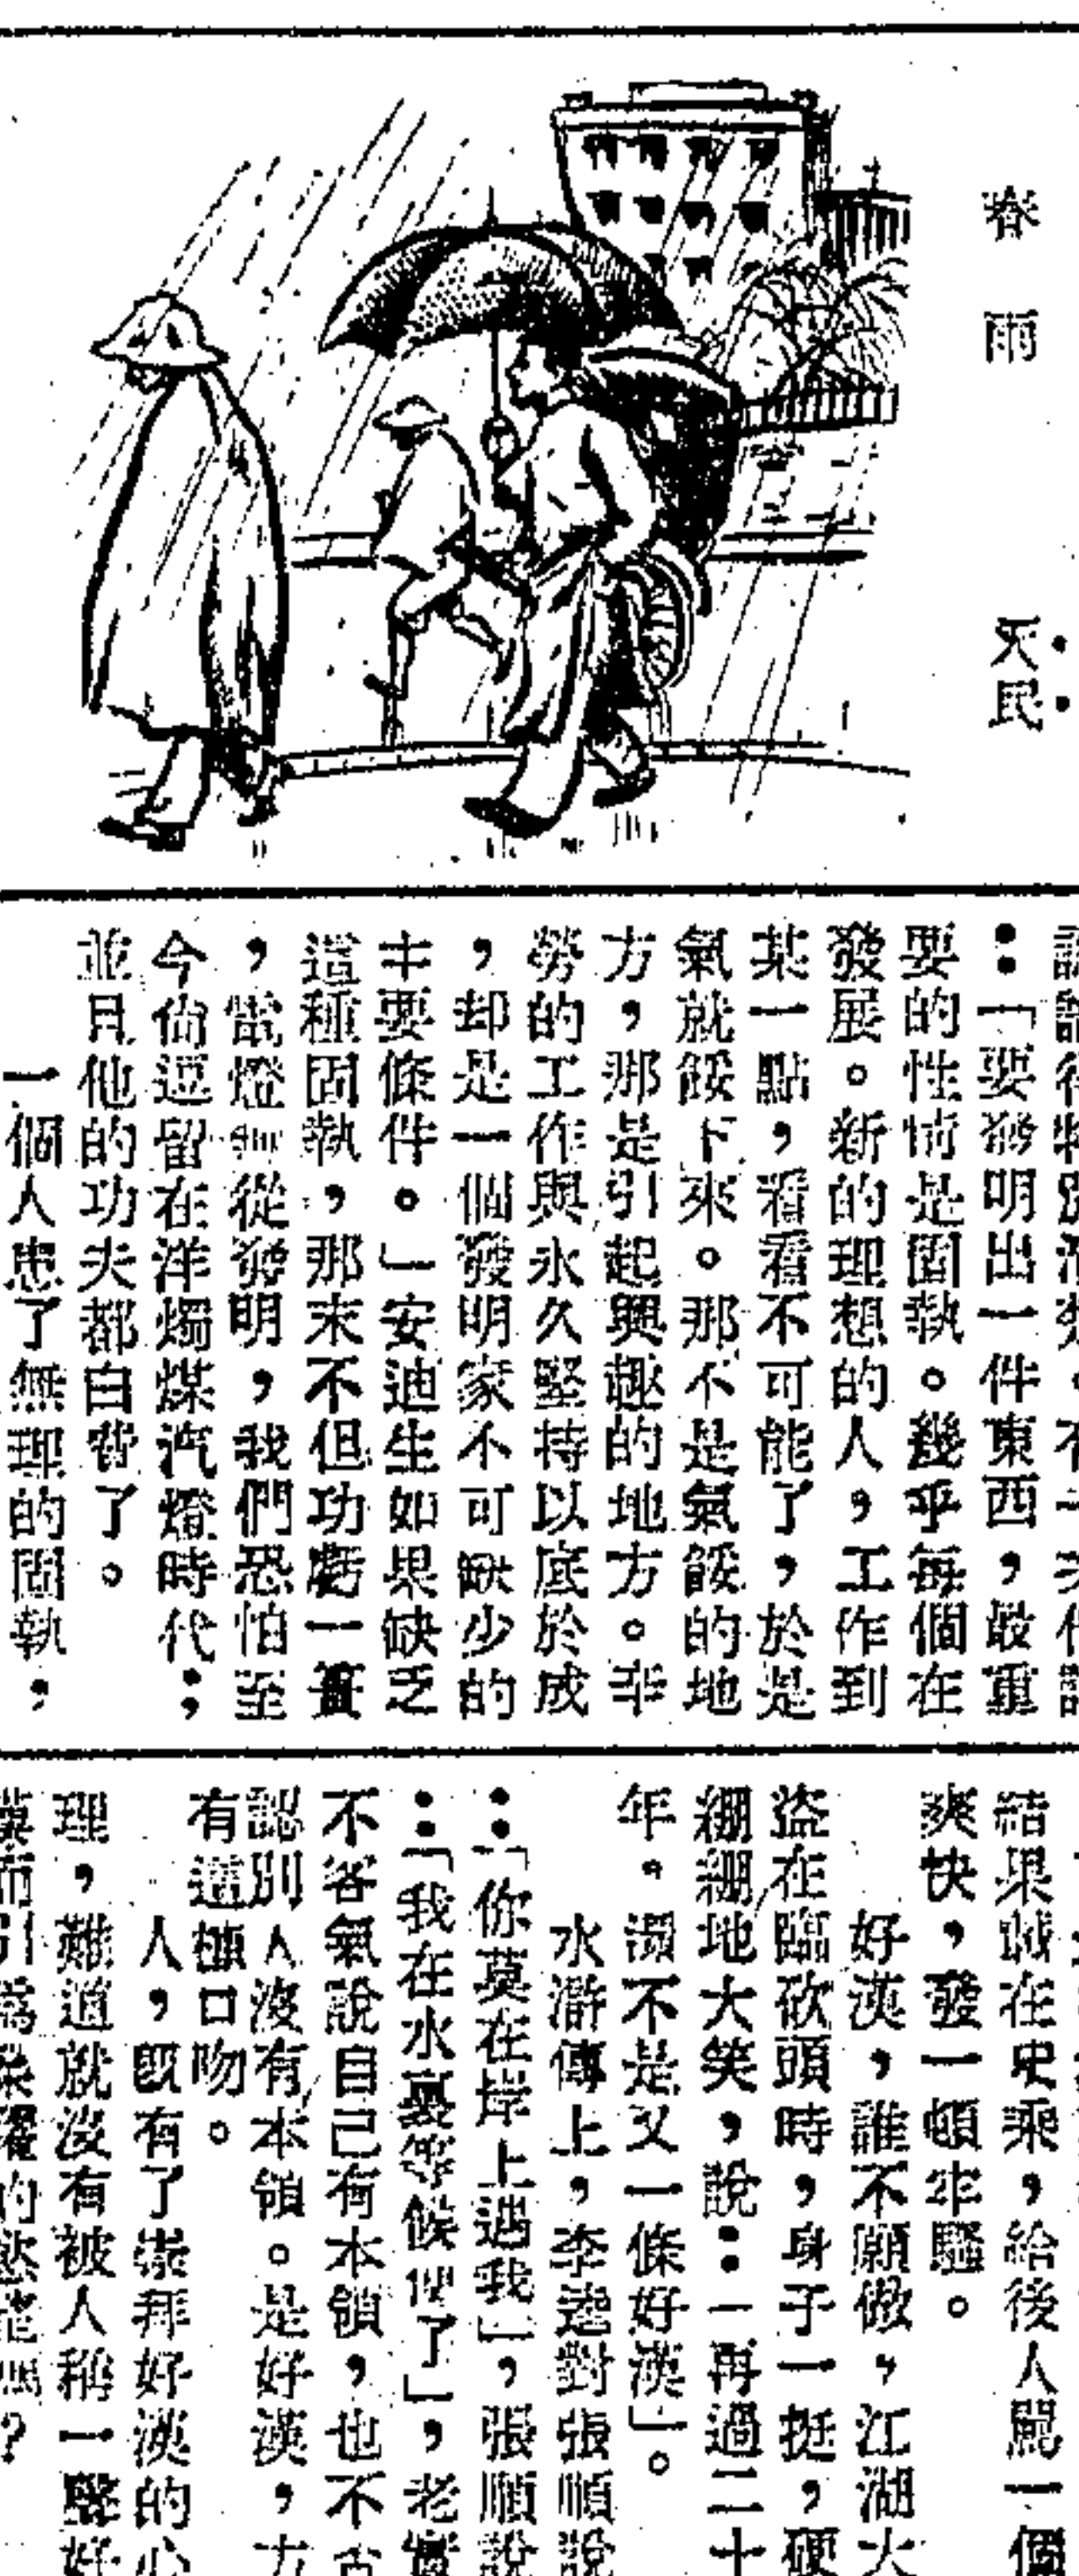 春雨
天民
:「要發明出一件東西,最重
要的性情是固執。幾乎每個在
發展。新的理想的人,工作到
某一點,看看不可能了,於是
氣就餒下來。那不是氣餒的地
方,那是引起興趣的地方。辛
勞的工作與永久堅持以底於成
,却是一個發明家不可缺少的
主要條件。」安迪生如果缺乏
這種固執,那末不但功虧一簣
,電燈無從發明,我們恐怕至
今尚逗留在洋燭煤汽燈時代;
並且他的功夫都白費了。
一個人患了無理的固執,
結果

在史乘,給後人罵一個
爽快,發一頓牢騷。
好漢,誰不願做,江湖大
盜在臨砍頭時,身子一挺,硬
綳綳地大笑,說:一再過二十
年。還不是又一條好漢」。
水滸傳上,李逵對張順說
:「你莫在岸上遇我」,張順說
:「我在水裏等候便了」,老實
不客氣說自己有本領,也不
認別人沒有本領。是好漢,方
有這種口吻。
人,既有了崇拜好漢的心
理,難道就沒有被人稱一聲好
漢而引爲榮耀的